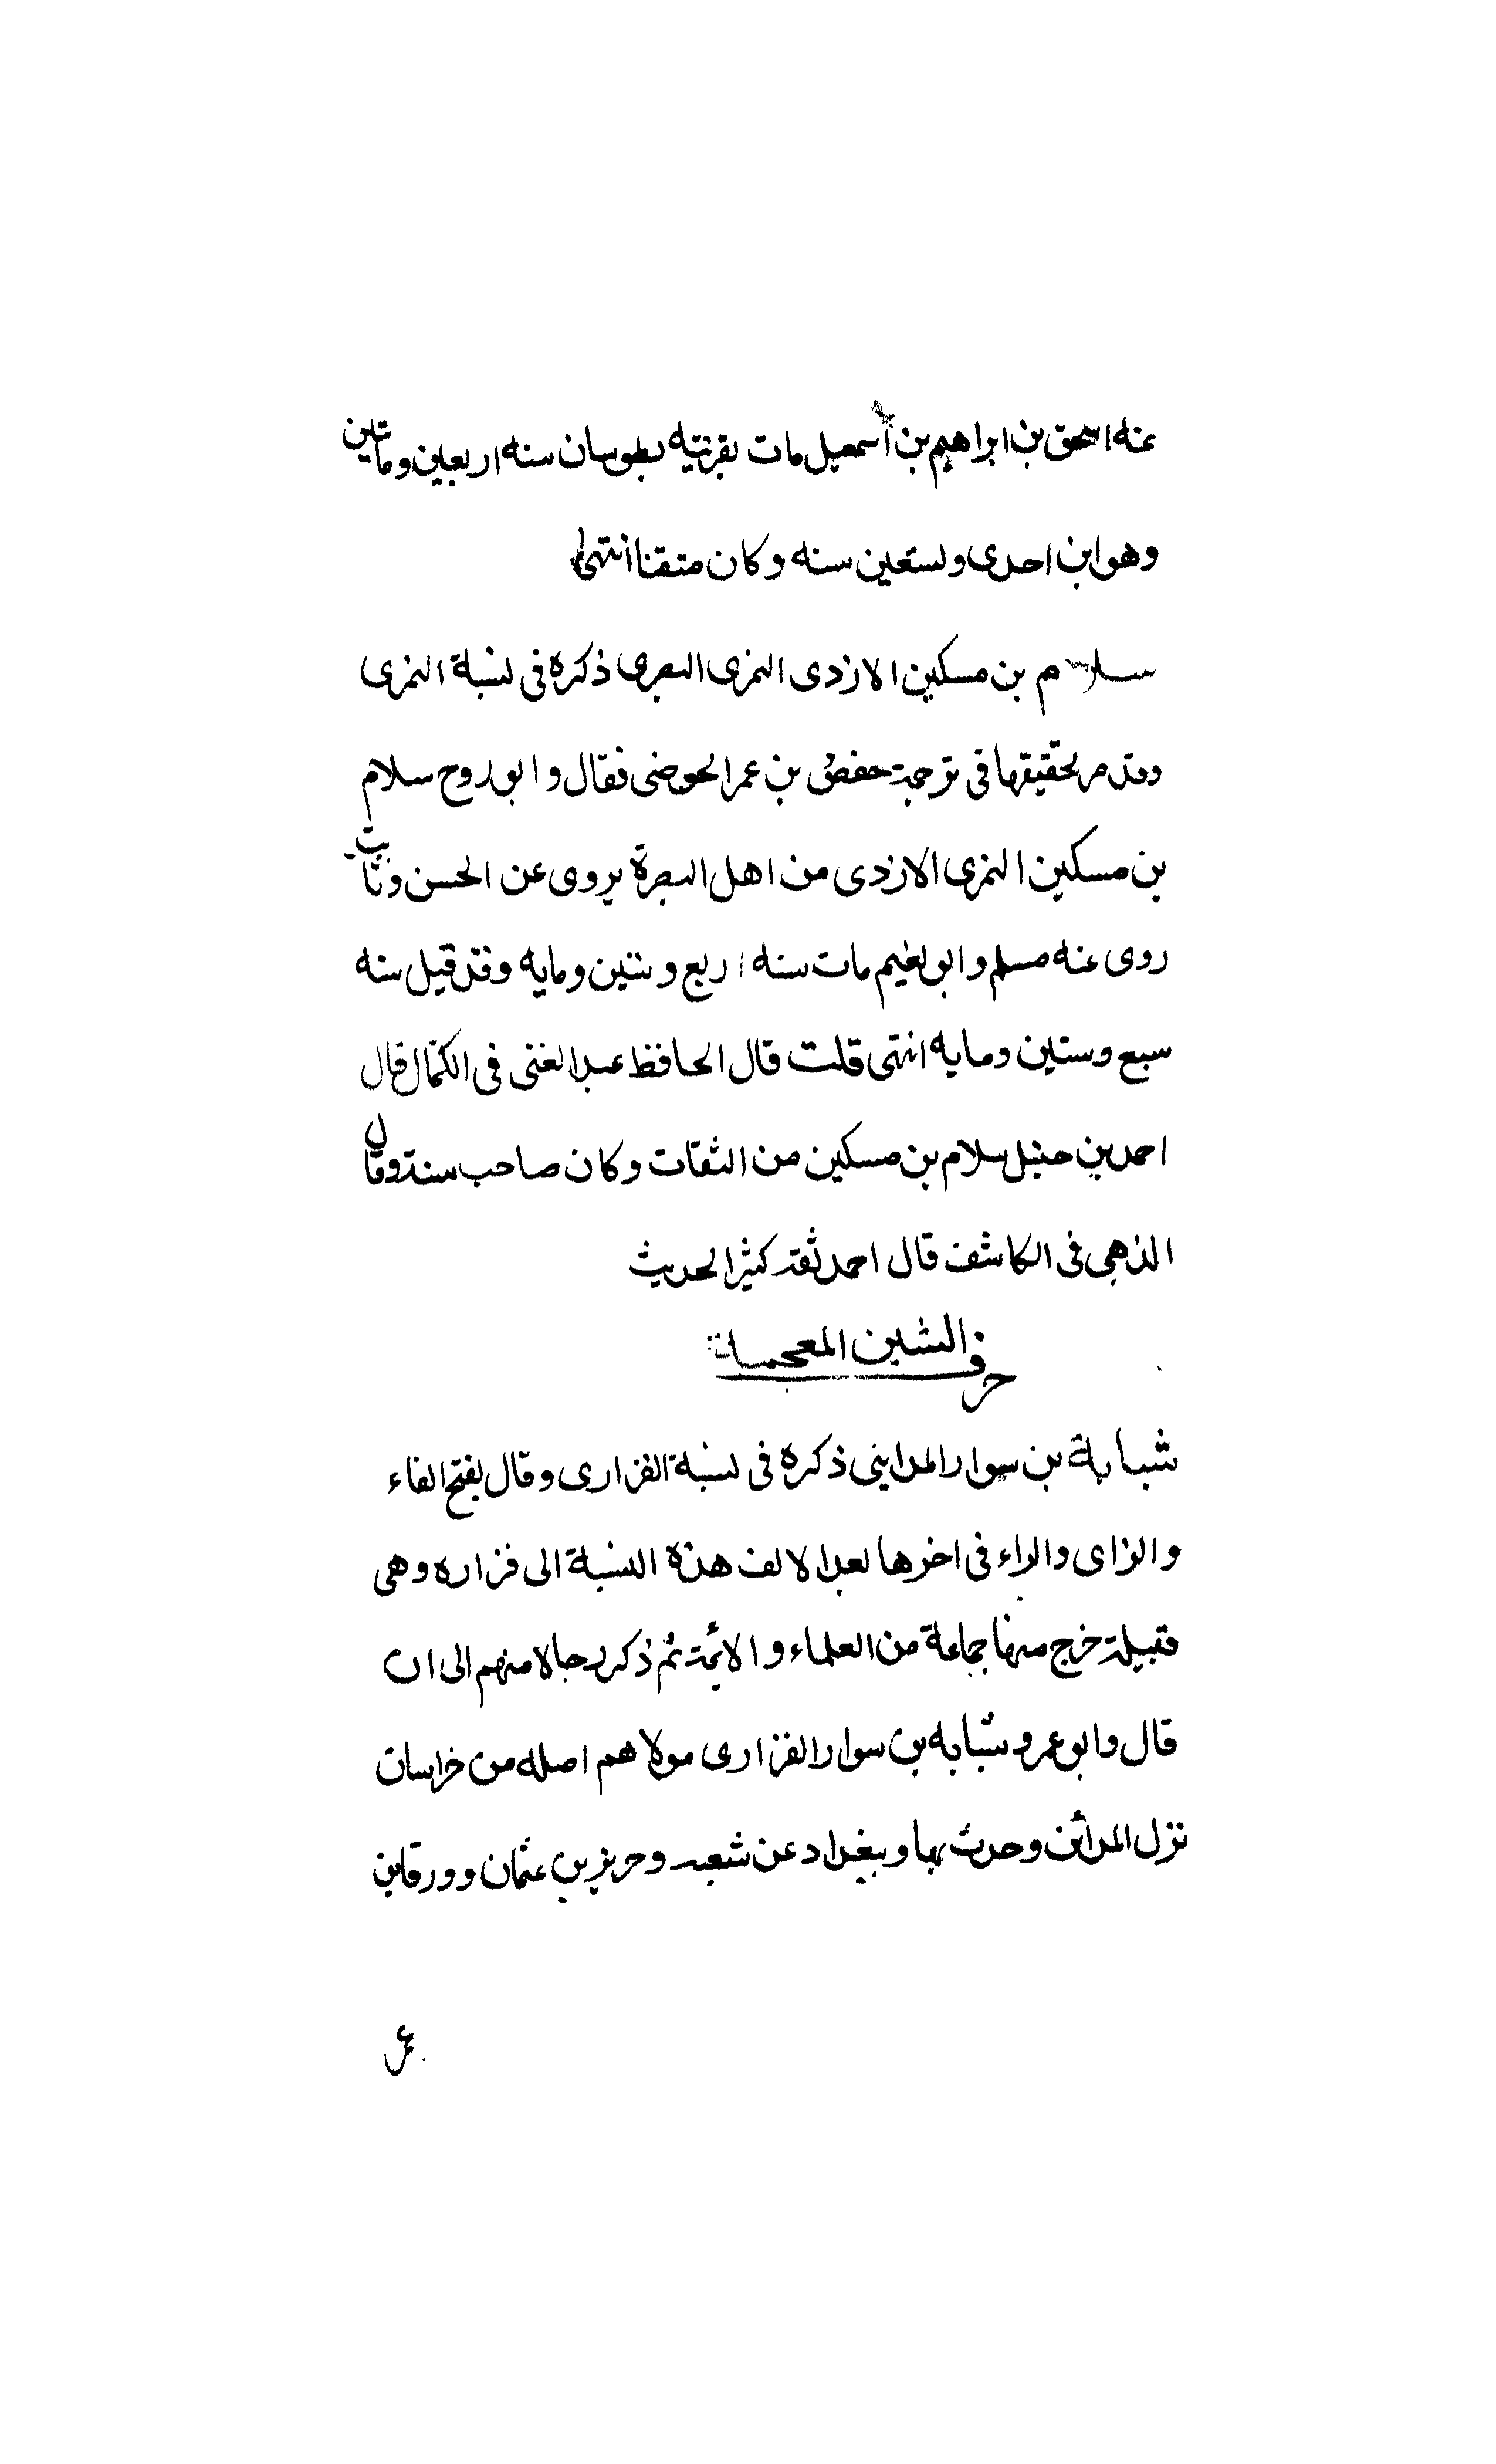 عنه اسحق بن ابراهيم بن اسمعيل مات بقرنتيه بطوسان سنه اربعين ومائتين
وهو ابن احدى وتسعين سنه وكان متقنا انتهى
سلام بن مسكين الازدى النمرى البصرى ذكره فى نسبة النمرى
وقد مر تحقيقها فى ترجمة حفص بن عمر الحوضى فقال وابو روح سلام
بن مسكين النمرى الازدى من اهل البصرة يروى عن الحسن وثابت
روى عنه مسلم وابو نعيم مات سنه اربع وستين ومايه وقد قيل سنه
سبع وستين ومايه انتهى قلت قال الحافظ عبد الغنى فى الكمال قال
احمد بن حنبل سلام بن مسكين من الثقات وكان صاحب سنة وقال
الذهبى فى الكاشف قال احمد ثقة كثير الحديث
حرف الشين المعجمة
شبابة بن سوار المداينى ذكره فى نسبة الفزارى وقال بفتح الفاء
والزاى والراء فى اخرها بعد الالف هذه النسبة الى فزاره وهى
قبيلة خرج منها جماعة من العلماء والائمة ثم ذكر رجالا منهم الى ان
قال وابو عمرو شبابه بن سوار الفزارى مولاهم اصله من خراسان
نزل المدائن وحدث بها وببغداد عن شعبه وحريز بن عثمان وورقا بن
عمر